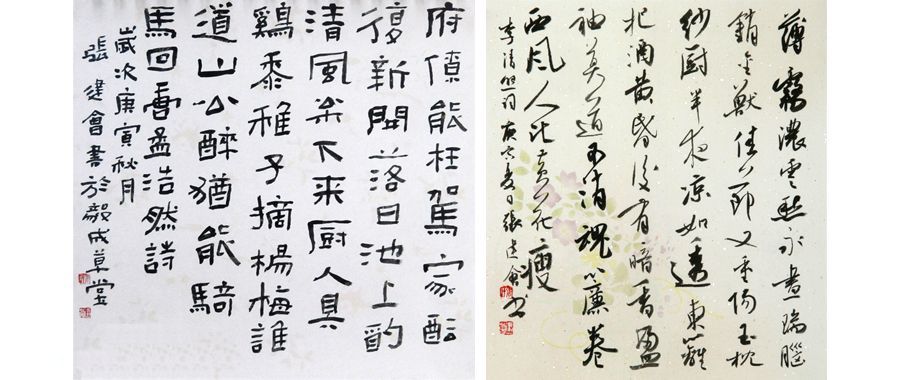 府僚能枉駕家醞
復新開落日池上酌
清風枀下来厨人具
鷄黍稚子摘楊梅誰
道山公醉猶能騎
馬回書孟浩然詩
歲次庚寅秋月
張建會書於毅成草堂
薄霧濃雲愁永晝瑞腦
銷金獸佳節又重陽玉枕
紗厨半夜凉如透東籬
把酒黄昏後有暗香盈
袖莫道不消魂簾卷
西風人比黄花瘦
李清照詞庚寅夏日張建會書